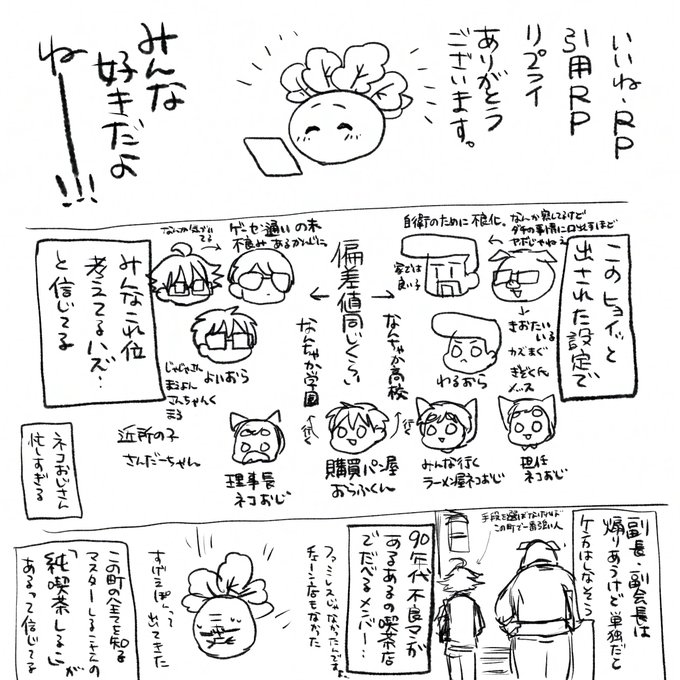 いいね・RP
引用RP
リプライ
ありがとう
ございます。
みんな
好きだよ
ねー!!!
このヒョイッと
出された設定で
自衛のために不良化。
なんか黙してるけど
ダチの事情に口出すほど
ヤボじゃねえ
家では
良い子
きおたい
いる
カズまぐ
ぎぞくん
メッス
わるおら
なんちゃか高校
偏差値同じくらい
なんちゃか学園
ゲーセン通いの末
不良みあるかんじに
よいおら
じゃじゃさん
まぐよん
こちゃんく
まる
みんなこれ位
考えてるハズ…
と信じてる
担任
ネコおじ
みんな行く
ラーメン屋ネコおじ
行く
購買パン屋
おらふくん
行く
理事長
ネコおじ
近所の子
さんだーちゃん
ネコおじさん
忙しすぎる
副長・副会長は
煽りあうけど単独だと
ケンカはしなそう
手段を選ばなければ
この町で一番強い人
90年代不良マンガ
あるあるの喫茶店
でだべるメンバー…
ファミレスじゃなかったんですよ。
チェーン店もなかった
すげえぽくって
出てきた
この町の全てを知る
マスターしるこさんの
「純喫茶しるこ」が
あるって信じてる